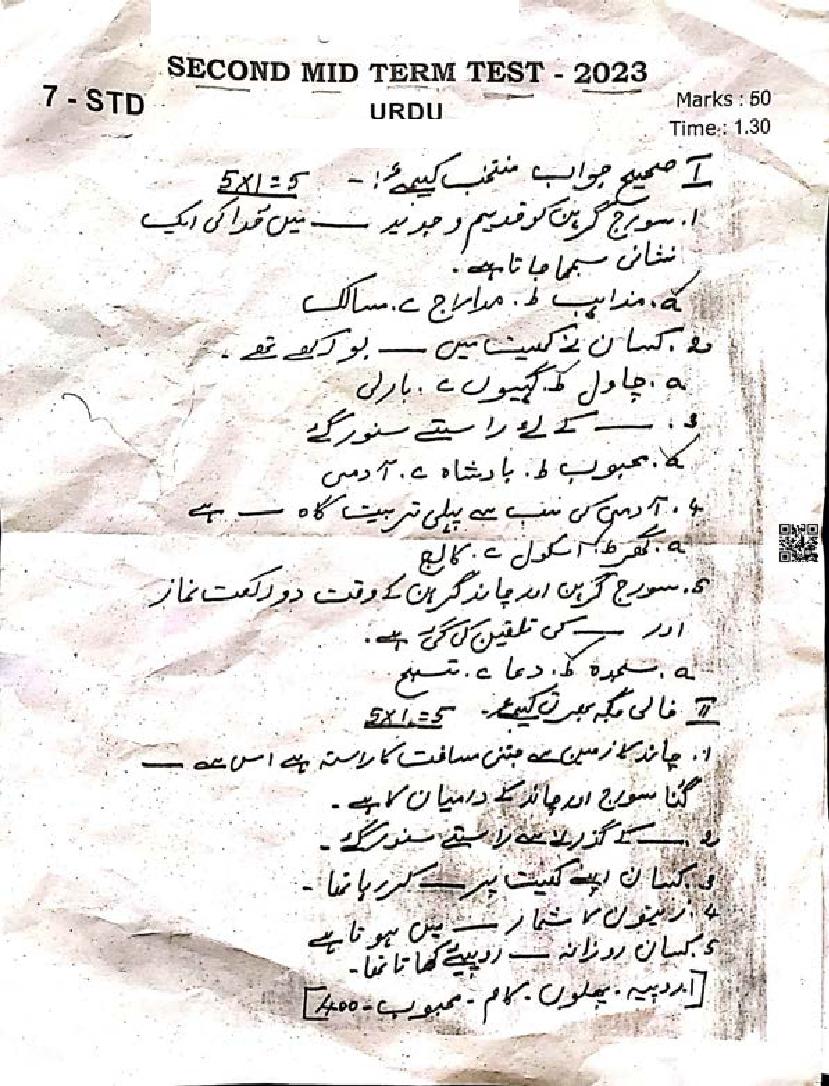 SECOND MID TERM TEST - 2023
7 - STD
URDU
Marks : 50
Time : 1.30
I صحیح جواب منتخب کیجیے :- 5x1=5
۱. سورج گرہن کو قدیم و جدید ــــ میں خدا کی ایک
نشانی سمجھا جاتا ہے.
a. مذاہب b. مدارج c. مسالک
۲. کسان نے کھیت میں ــــ بو رکھے تھے.
a. چاول b. گیہوں c. بارلی
۳. ــــ کے لئے راستے سنور گئے
a. محبوب b. بادشاہ c. آدمی
۴. آدمی کی سب سے پہلی تربیت گاہ ــــ ہے
a. گھر b. اسکول c. کالج
۵. سورج گرہن اور چاند گرہن کے وقت دو رکعت نماز
اور ــــ کی تلقین کی گئی ہے.
a. سجدہ b. دعا c. تسبیح
II خالی جگہ بھرتی کیجیے- 5x1=5
۱. چاند کا زمین سے جتنی مسافت کا راستہ ہے اس سے ــــ
گنا سورج اور چاند کے درمیان کا ہے -
۲. ــــ کے گذرنے سے راستے سنور گئے -
۳. کسان اپنے کھیت پر ــــ کر رہا تھا -
۴. زیتون کا شمار ــــ میں ہوتا ہے
۵. کسان روزانہ ــــ روپیے کھاتا تھا -
[ا روپیہ - پھلوں - کام - محبوب - ۴۰۰]